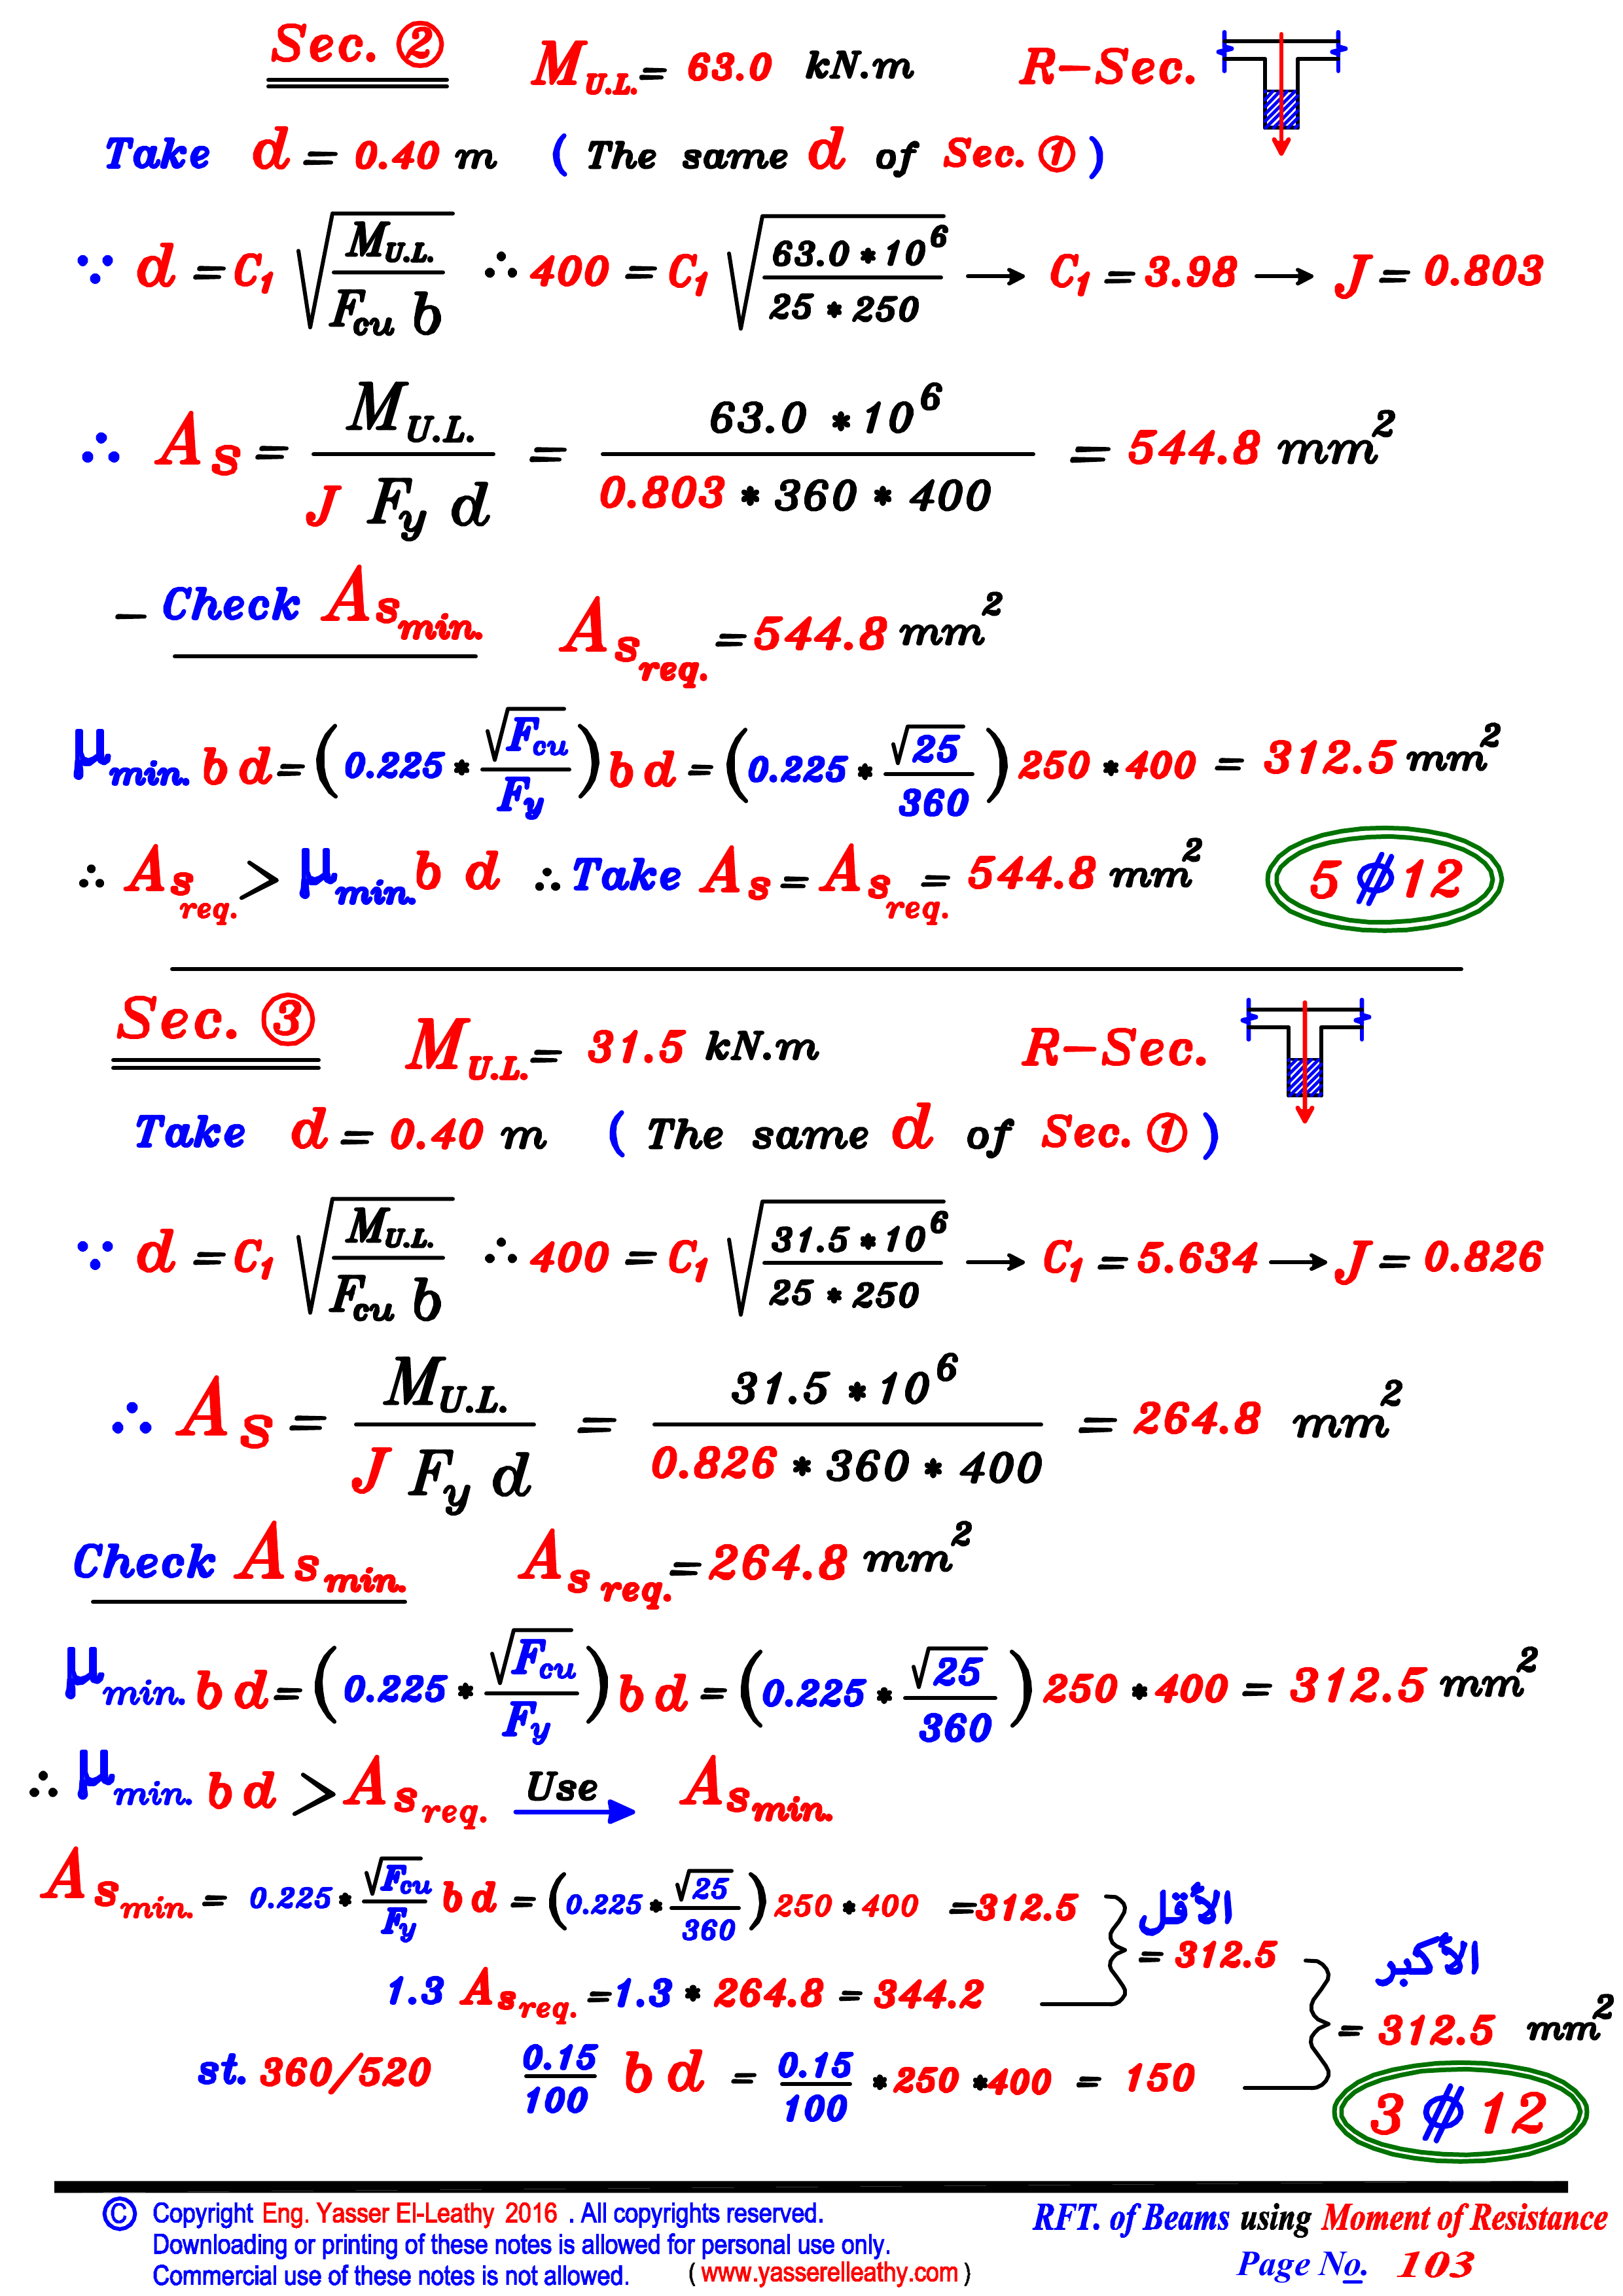 Sec. ② M U.L. = 63.0 kN.m R-Sec.
Take d = 0.40 m ( The same d of Sec. ① )
∵ d = C₁ √(M U.L. / Fcu b) ∴ 400 = C₁ √(63.0 * 10⁶ / 25 * 250) → C₁ = 3.98 → J = 0.803
∴ As = M U.L. / J Fy d = 63.0 * 10⁶ / 0.803 * 360 * 400 = 544.8 mm²
- Check As min. As req. = 544.8 mm²
μ min. b d = (0.225 * √Fcu / Fy) b d = (0.225 * √25 / 360) 250 * 400 = 312.5 mm²
∴ As req. > μ min. b d ∴ Take As = As req. = 544.8 mm² 5 ⌀ 12
Sec. ③ M U.L. = 31.5 kN.m R-Sec.
Take d = 0.40 m ( The same d of Sec. ① )
∵ d = C₁ √(M U.L. / Fcu b) ∴ 400 = C₁ √(31.5 * 10⁶ / 25 * 250) → C₁ = 5.634 → J = 0.826
∴ As = M U.L. / J Fy d = 31.5 * 10⁶ / 0.826 * 360 * 400 = 264.8 mm²
Check As min. As req. = 264.8 mm²
μ min. b d = (0.225 * √Fcu / Fy) b d = (0.225 * √25 / 360) 250 * 400 = 312.5 mm²
∴ μ min. b d > As req. Use → As min.
As min. = 0.225 * √Fcu / Fy b d = (0.225 * √25 / 360) 250 * 400 = 312.5
الأقل
= 312.5
1.3 As req. = 1.3 * 264.8 = 344.2
الأكبر
= 312.5 mm²
st. 360/520 0.15 / 100 b d = 0.15 / 100 * 250 * 400 = 150
3 ⌀ 12
© Copyright Eng. Yasser El-Leathy 2016 . All copyrights reserved.
Downloading or printing of these notes is allowed for personal use only.
Commercial use of these notes is not allowed. ( www.yasserelleathy.com )
RFT. of Beams using Moment of Resistance
Page No. 103